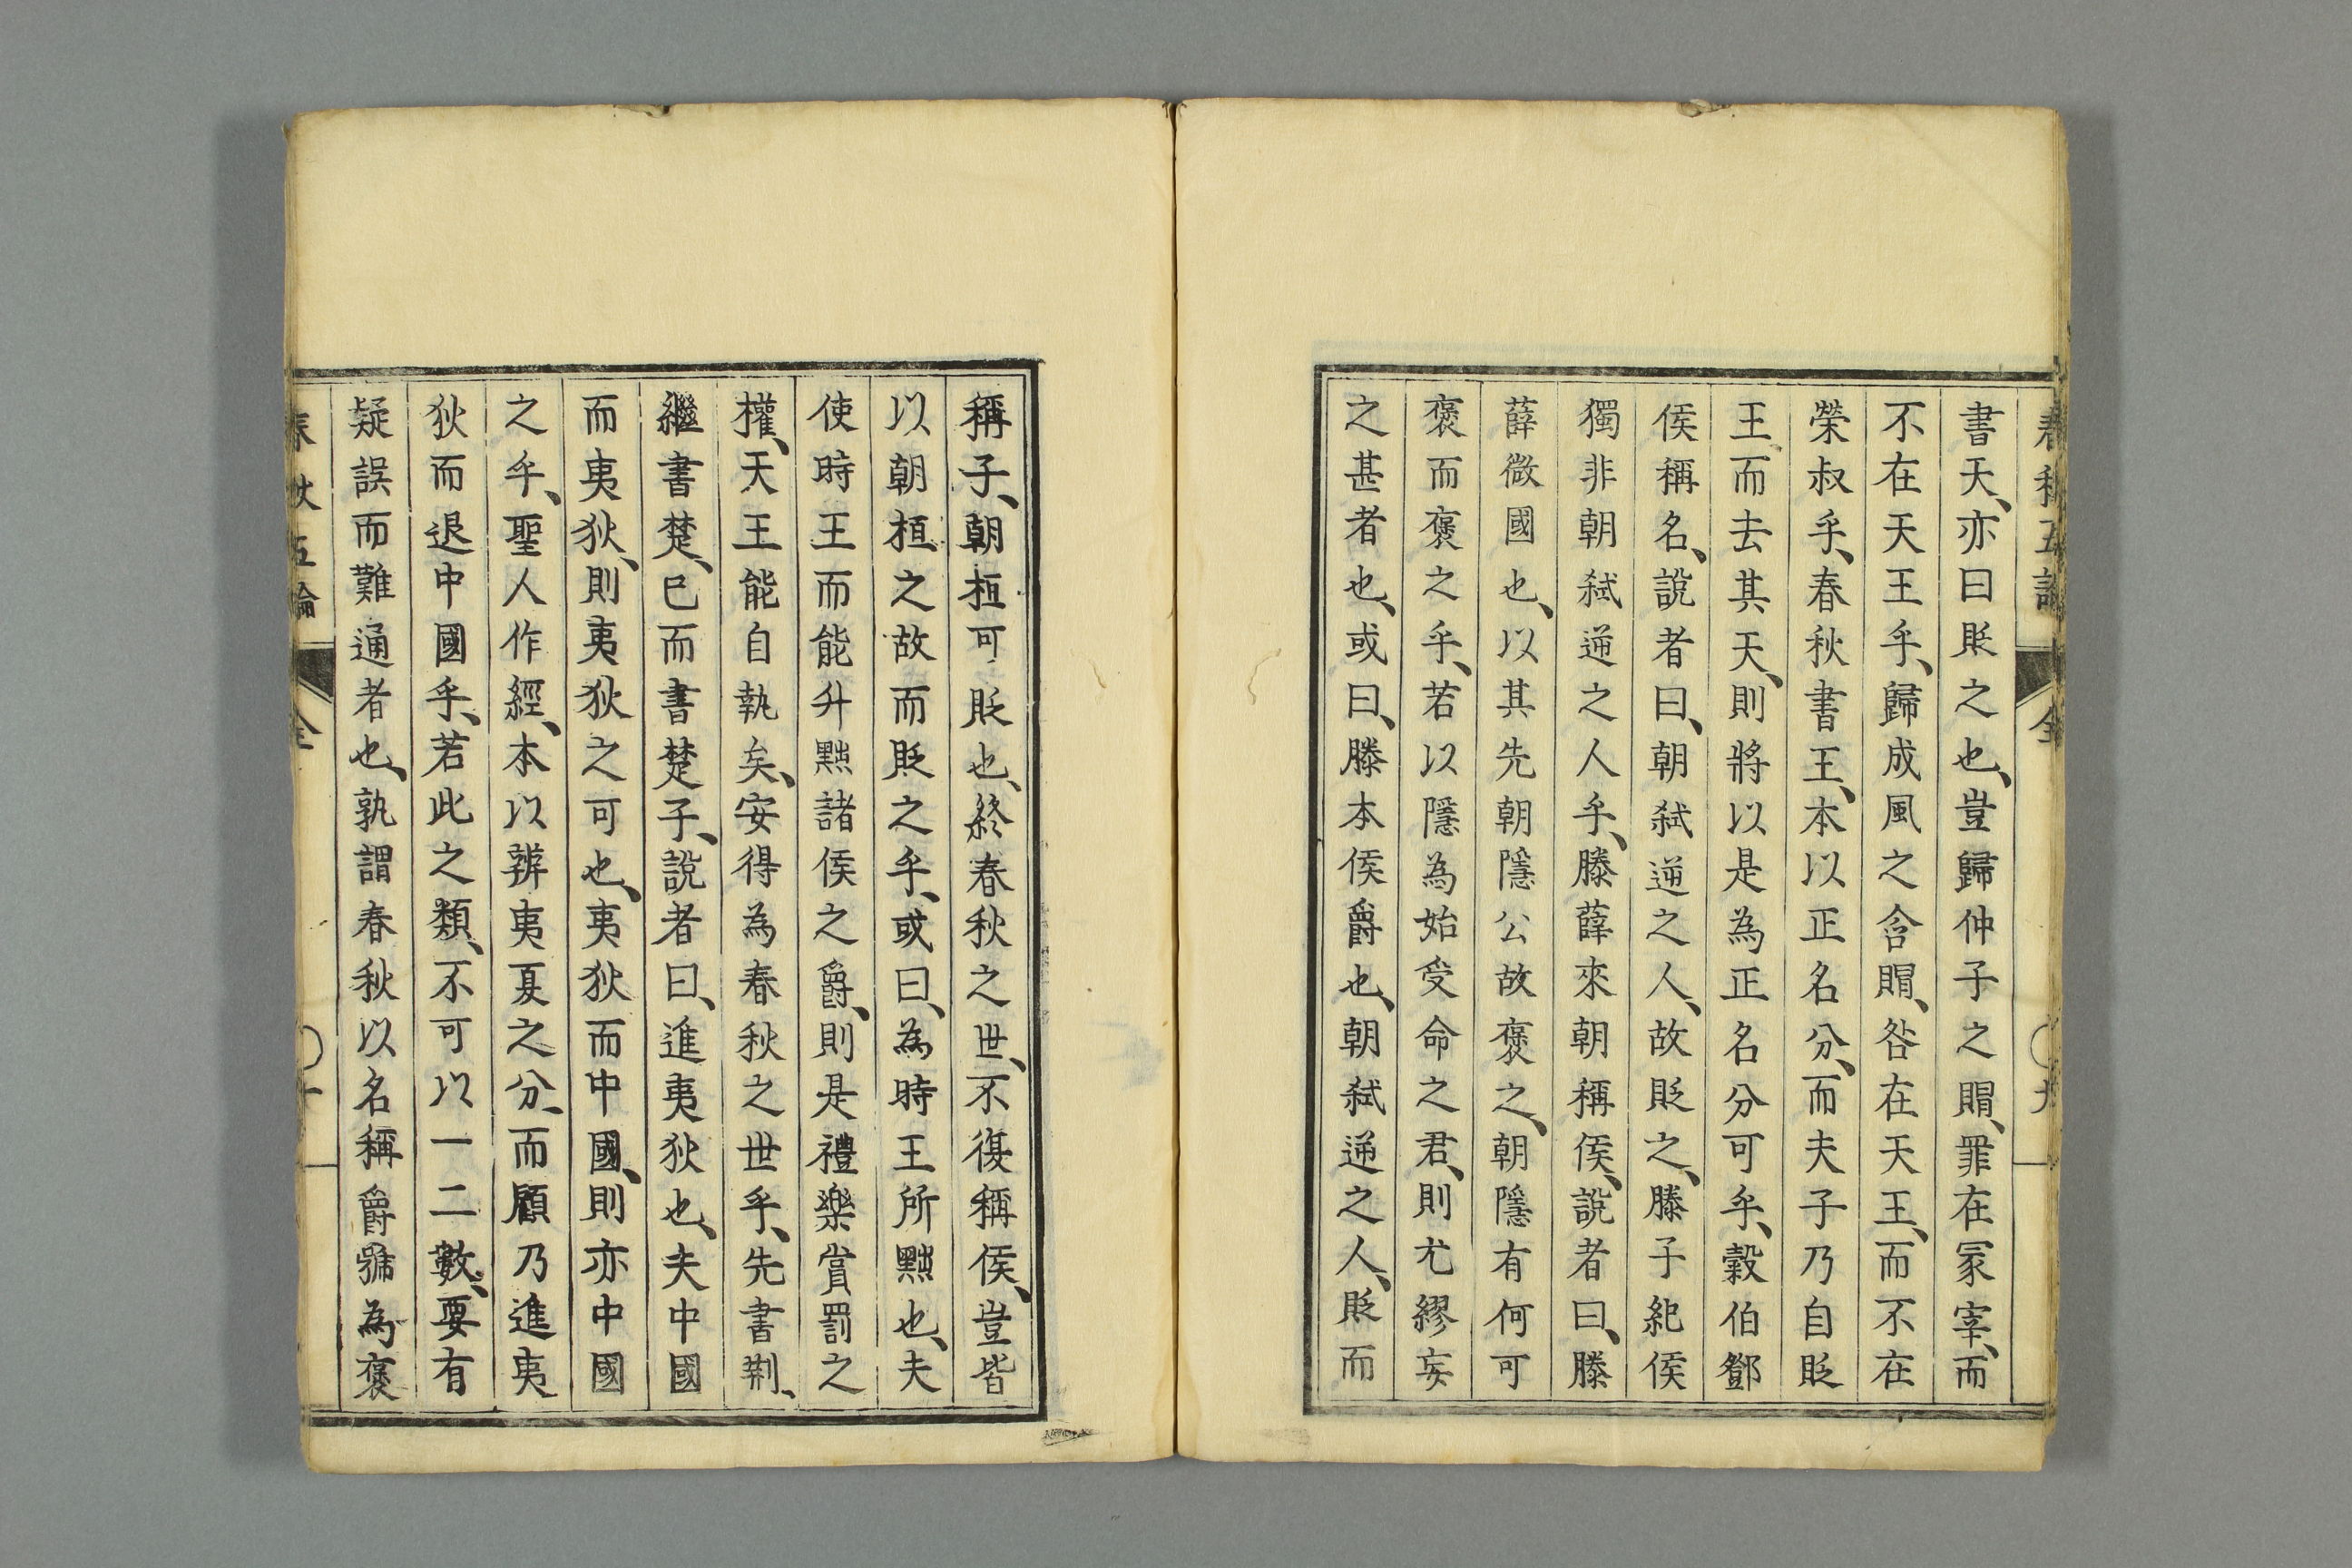 書天、亦曰貶之也、豈歸仲子之賵、罪在冢宰、而
不在天王乎、歸成風之含賵、咎在天王、而不在
榮叔乎、春秋書王、本以正名分、而夫子乃自貶
王、而去其天、則將以是為正名分可乎、穀伯鄧
侯稱名、說者曰、朝弑逆之人、故貶之、滕子紀侯
獨非朝弑逆之人乎、滕薛來朝稱侯、說者曰、滕
薛微國也、以其先朝隱公故褒之、朝隱有何可
褒而褒之乎、若以隱為始受命之君、則尤繆妄
之甚者也、或曰、滕本侯爵也、朝弑逆之人、貶而
稱子、朝桓可貶也、終春秋之世、不復稱侯、豈皆
以朝桓之故而貶之乎、或曰、為時王所黜也、夫
使時王而能升黜諸侯之爵、則是禮樂賞罰之
權、天王能自執矣、安得為春秋之世乎、先書荆、
繼書楚、已而書楚子、說者曰、進夷狄也、夫中國
而夷狄、則夷狄之可也、夷狄而中國、則亦中國
之乎、聖人作經、本以辨夷夏之分、而顧乃進夷
狄而退中國乎、若此之類、不可以一二數、要有
疑誤而難通者也、孰謂春秋以名稱爵號為褒